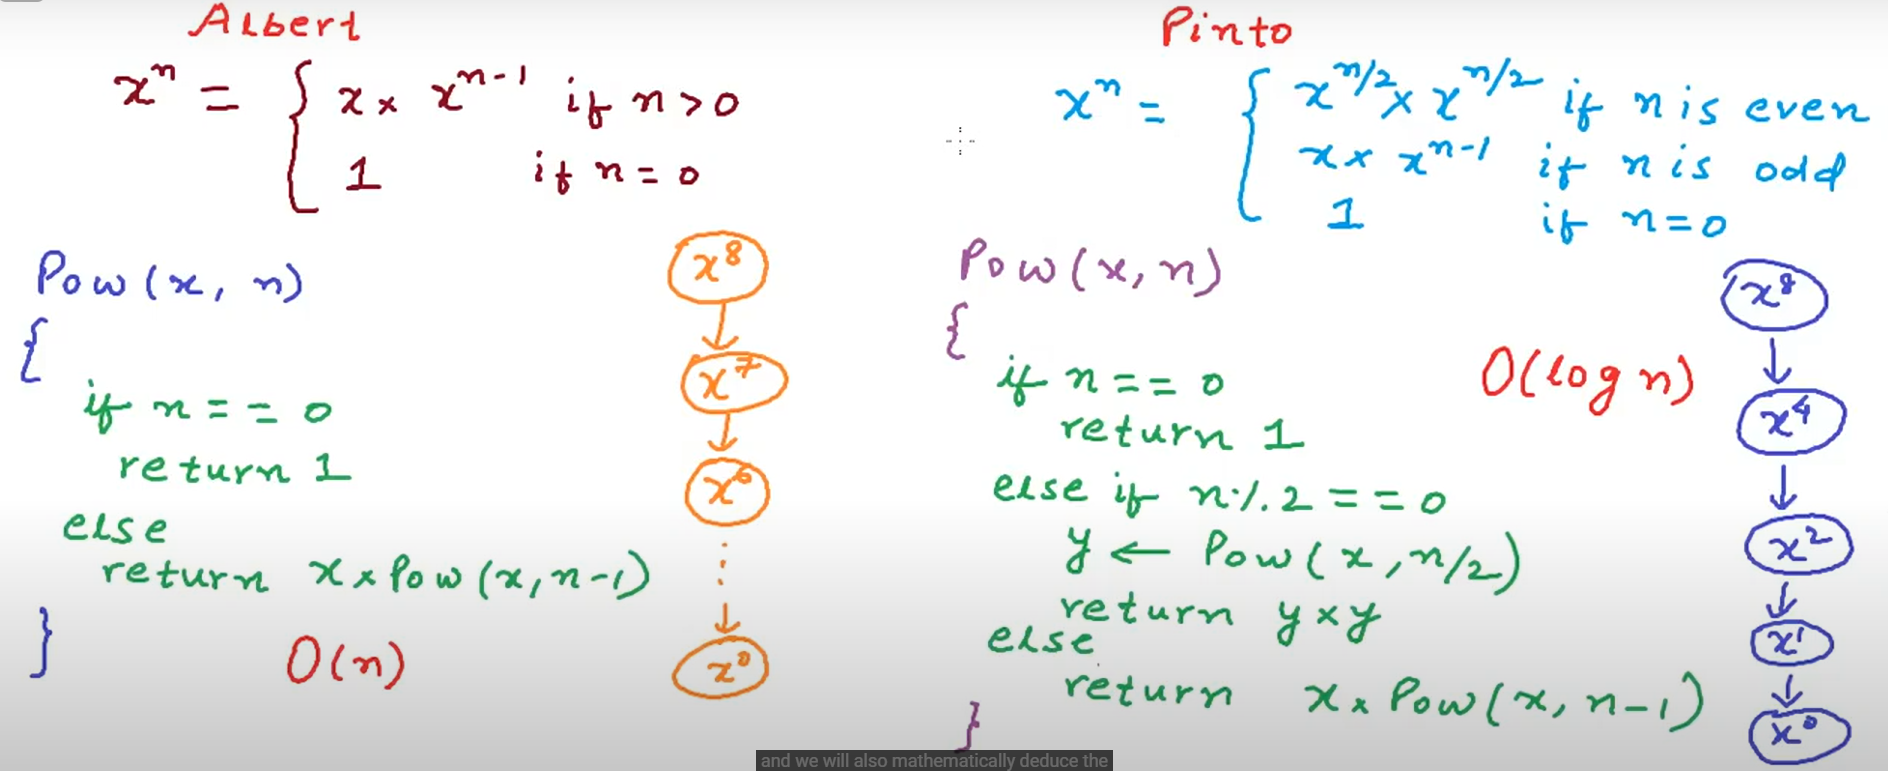 Albert
xⁿ = { x × xⁿ⁻¹ if n > 0
1 if n = 0
Pow (x, n)
{
if n = = 0
return 1
else
return x × Pow (x, n-1)
}
O(n)
x⁸
x⁷
x⁶
x⁰
Pinto
xⁿ = { x^n/2 × x^n/2 if n is even
x × xⁿ⁻¹ if n is odd
1 if n = 0
Pow (x, n)
{
if n = = 0
return 1
else if n % 2 = = 0
y ← Pow (x, n/2)
return y × y
else
return x × Pow (x, n-1)
}
O(log n)
x⁸
x⁴
x²
x¹
x⁰
and we will also mathematically deduce the